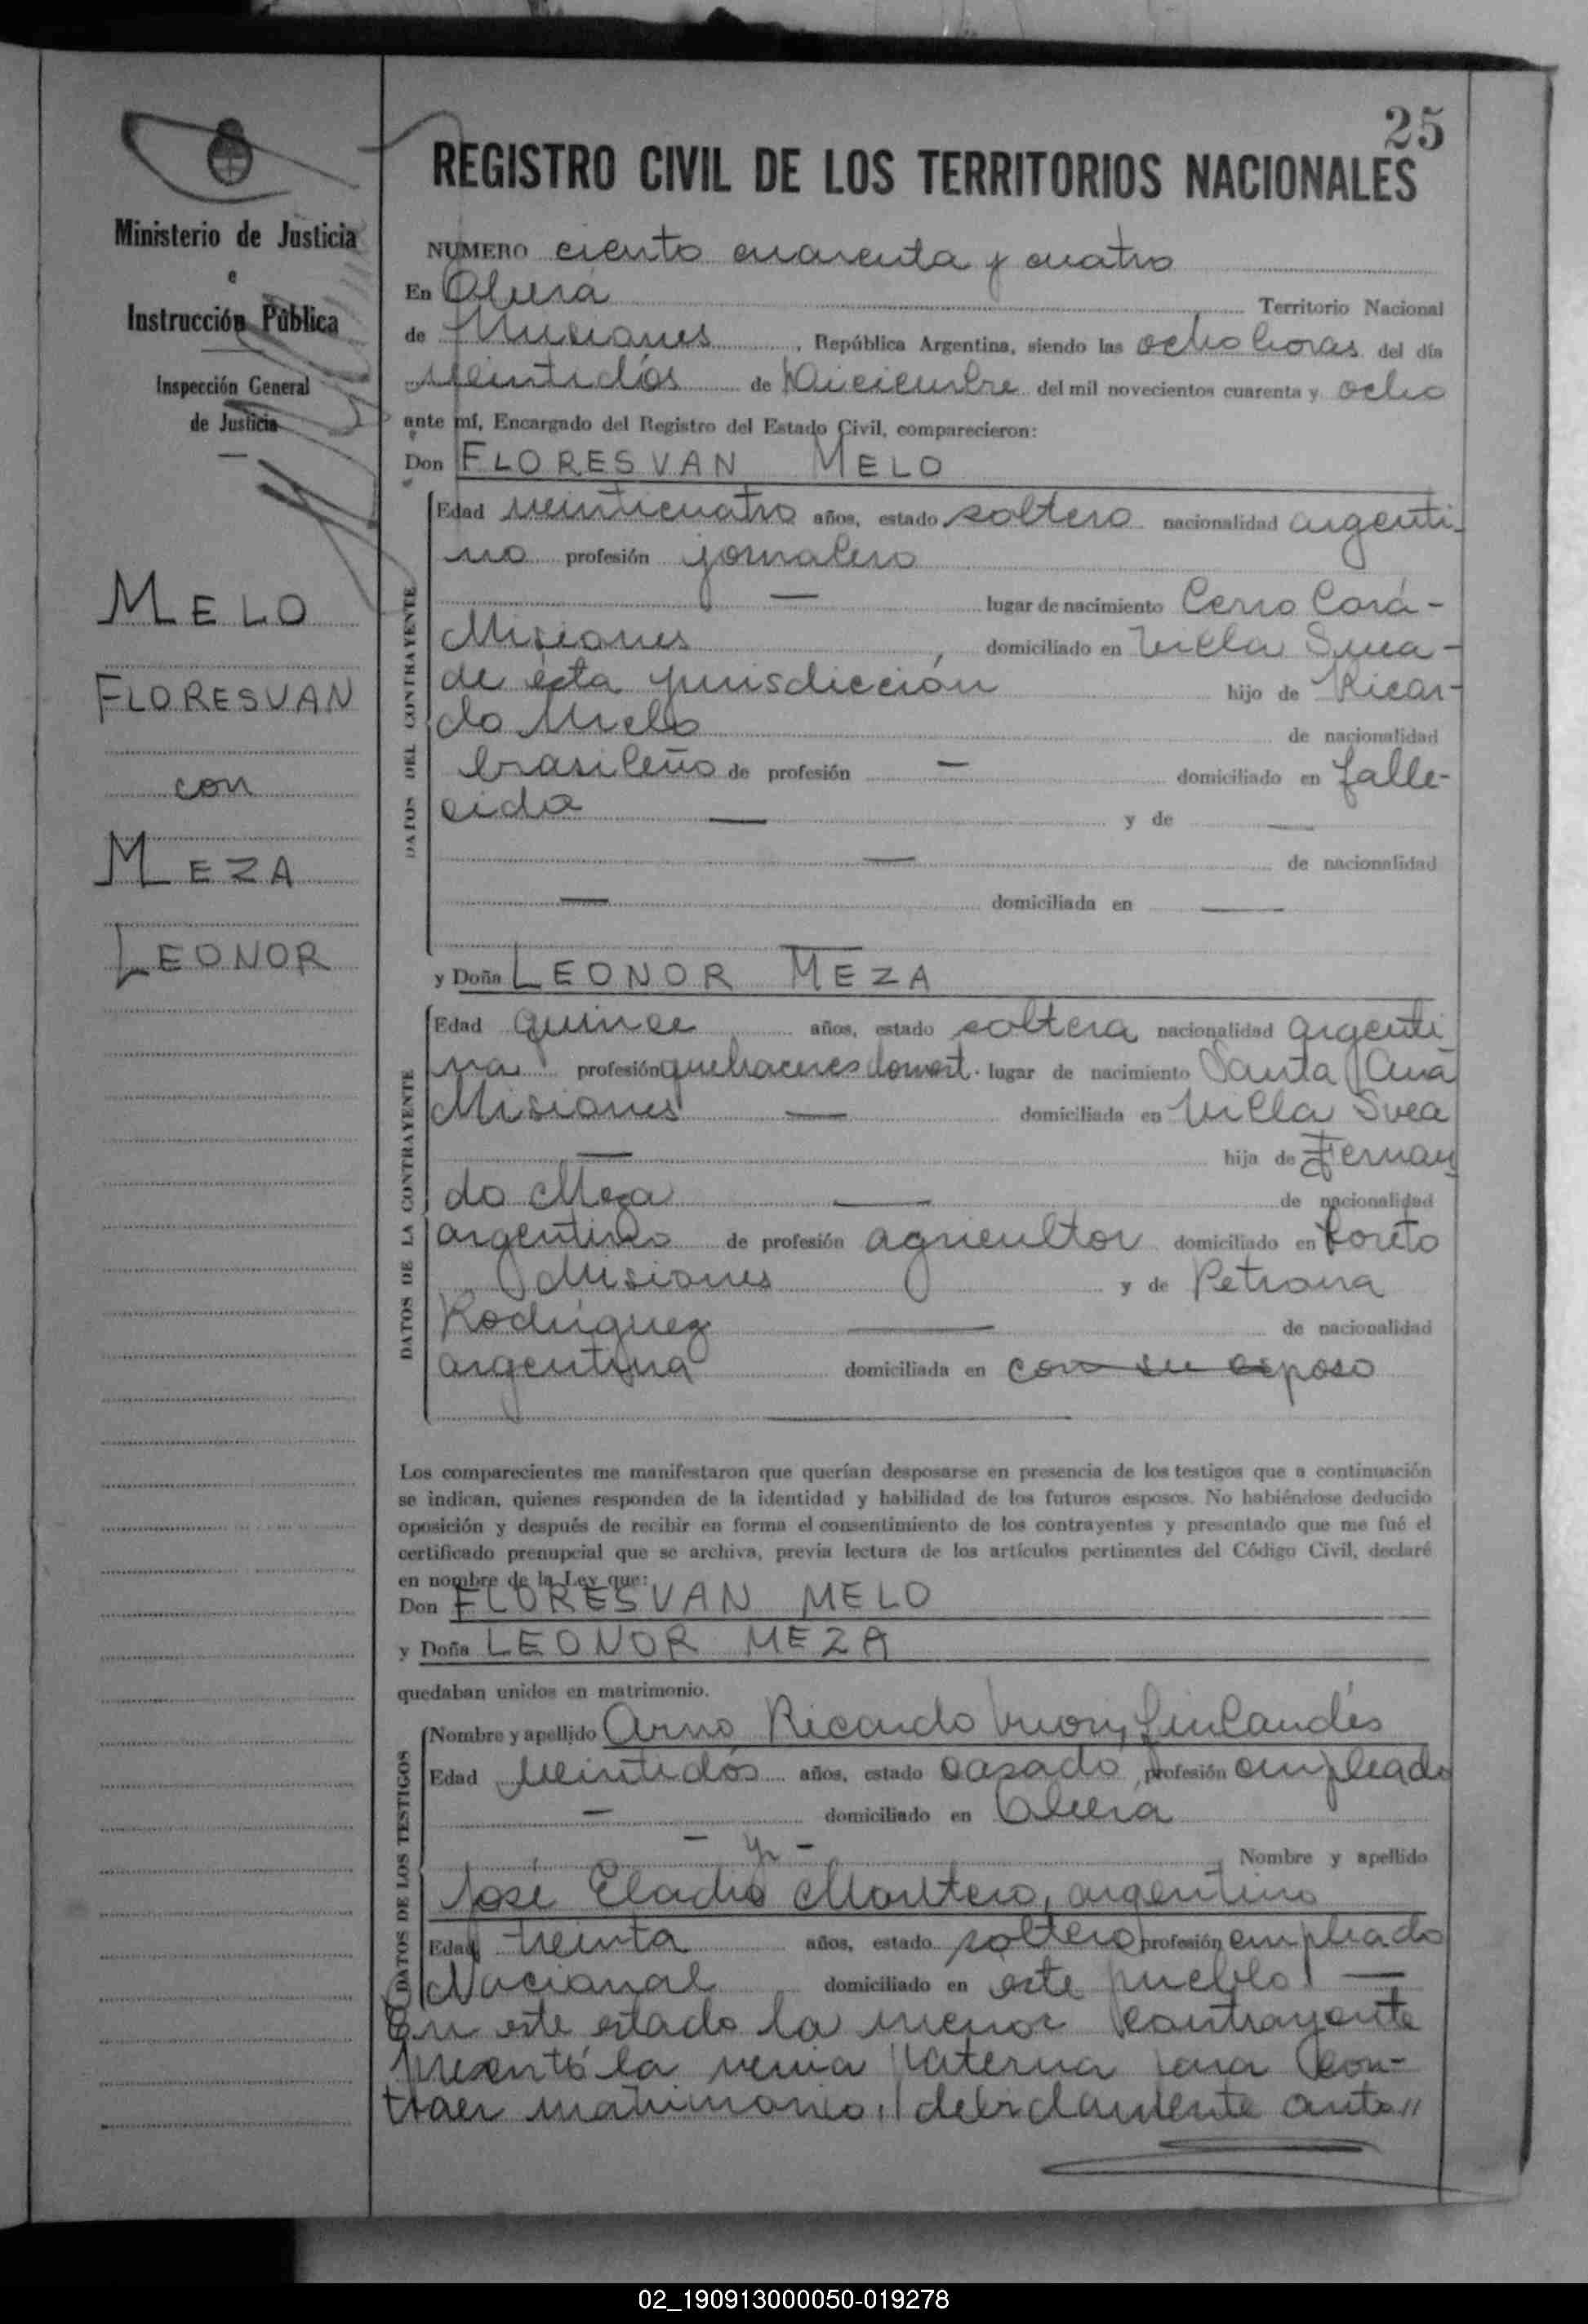 25
REGISTRO CIVIL DE LOS TERRITORIOS NACIONALES
Ministerio de Justicia
e
Instrucción Pública
Inspección General
de Justicia
MELO
FLORESVAN
con
MEZA
LEONOR
NUMERO ciento cuarenta y cuatro
En Oberá Territorio Nacional
de Misiones, República Argentina, siendo las ocho horas del día
veintidós de Diciembre del mil novecientos cuarenta y ocho
ante mí, Encargado del Registro del Estado Civil, comparecieron:
Don FLORESVAN MELO
DATOS DEL CONTRAYENTE
Edad veinticuatro años, estado soltero nacionalidad argenti-
no profesión jornalero
— lugar de nacimiento Cerro Corá-
Misiones, domiciliado en Villa Svea-
de ésta jurisdicción hijo de Ricar-
do Melo de nacionalidad
brasileño de profesión — domiciliado en falle-
cido — y de —
— de nacionalidad
— domiciliada en —
y Doña LEONOR MEZA
DATOS DE LA CONTRAYENTE
Edad quince años, estado soltera nacionalidad argenti
na profesión quehaceres domest. lugar de nacimiento Santa Ana
Misiones — domiciliada en Villa Svea
— hija de Fernan
do Meza — de nacionalidad
argentino de profesión agricultor domiciliado en Loreto
Misiones y de Petrona
Rodríguez — de nacionalidad
argentina domiciliada en con su esposo
Los comparecientes me manifestaron que querían desposarse en presencia de los testigos que a continuación
se indican, quienes responden de la identidad y habilidad de los futuros esposos. No habiéndose deducido
oposición y después de recibir en forma el consentimiento de los contrayentes y presentado que me fué el
certificado prenupcial que se archiva, previa lectura de los artículos pertinentes del Código Civil, declaré
en nombre de la Ley que:
Don FLORESVAN MELO
y Doña LEONOR MEZA
quedaban unidos en matrimonio.
DATOS DE LOS TESTIGOS
Nombre y apellido Arno Ricardo finlandés
Edad veintidós años, estado casado, profesión empleado
— domiciliado en Oberá
— y — Nombre y apellido
José Eladio Montero, argentino
Edad treinta años, estado soltero profesión empleado
Nacional domiciliado en este pueblo. —
En este estado la menor contrayente
presentó la venia paterna para con-
traer matrimonio, debidamente auto//
02_190913000050-019278